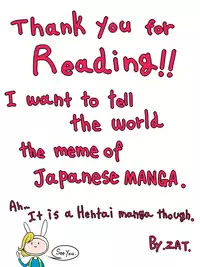 Thank you for
Reading!!
I want to tell
the world
the meme of
Japanese MANGA.
Ah...
It is a Hentai manga though.
By.ZAT.
See you.